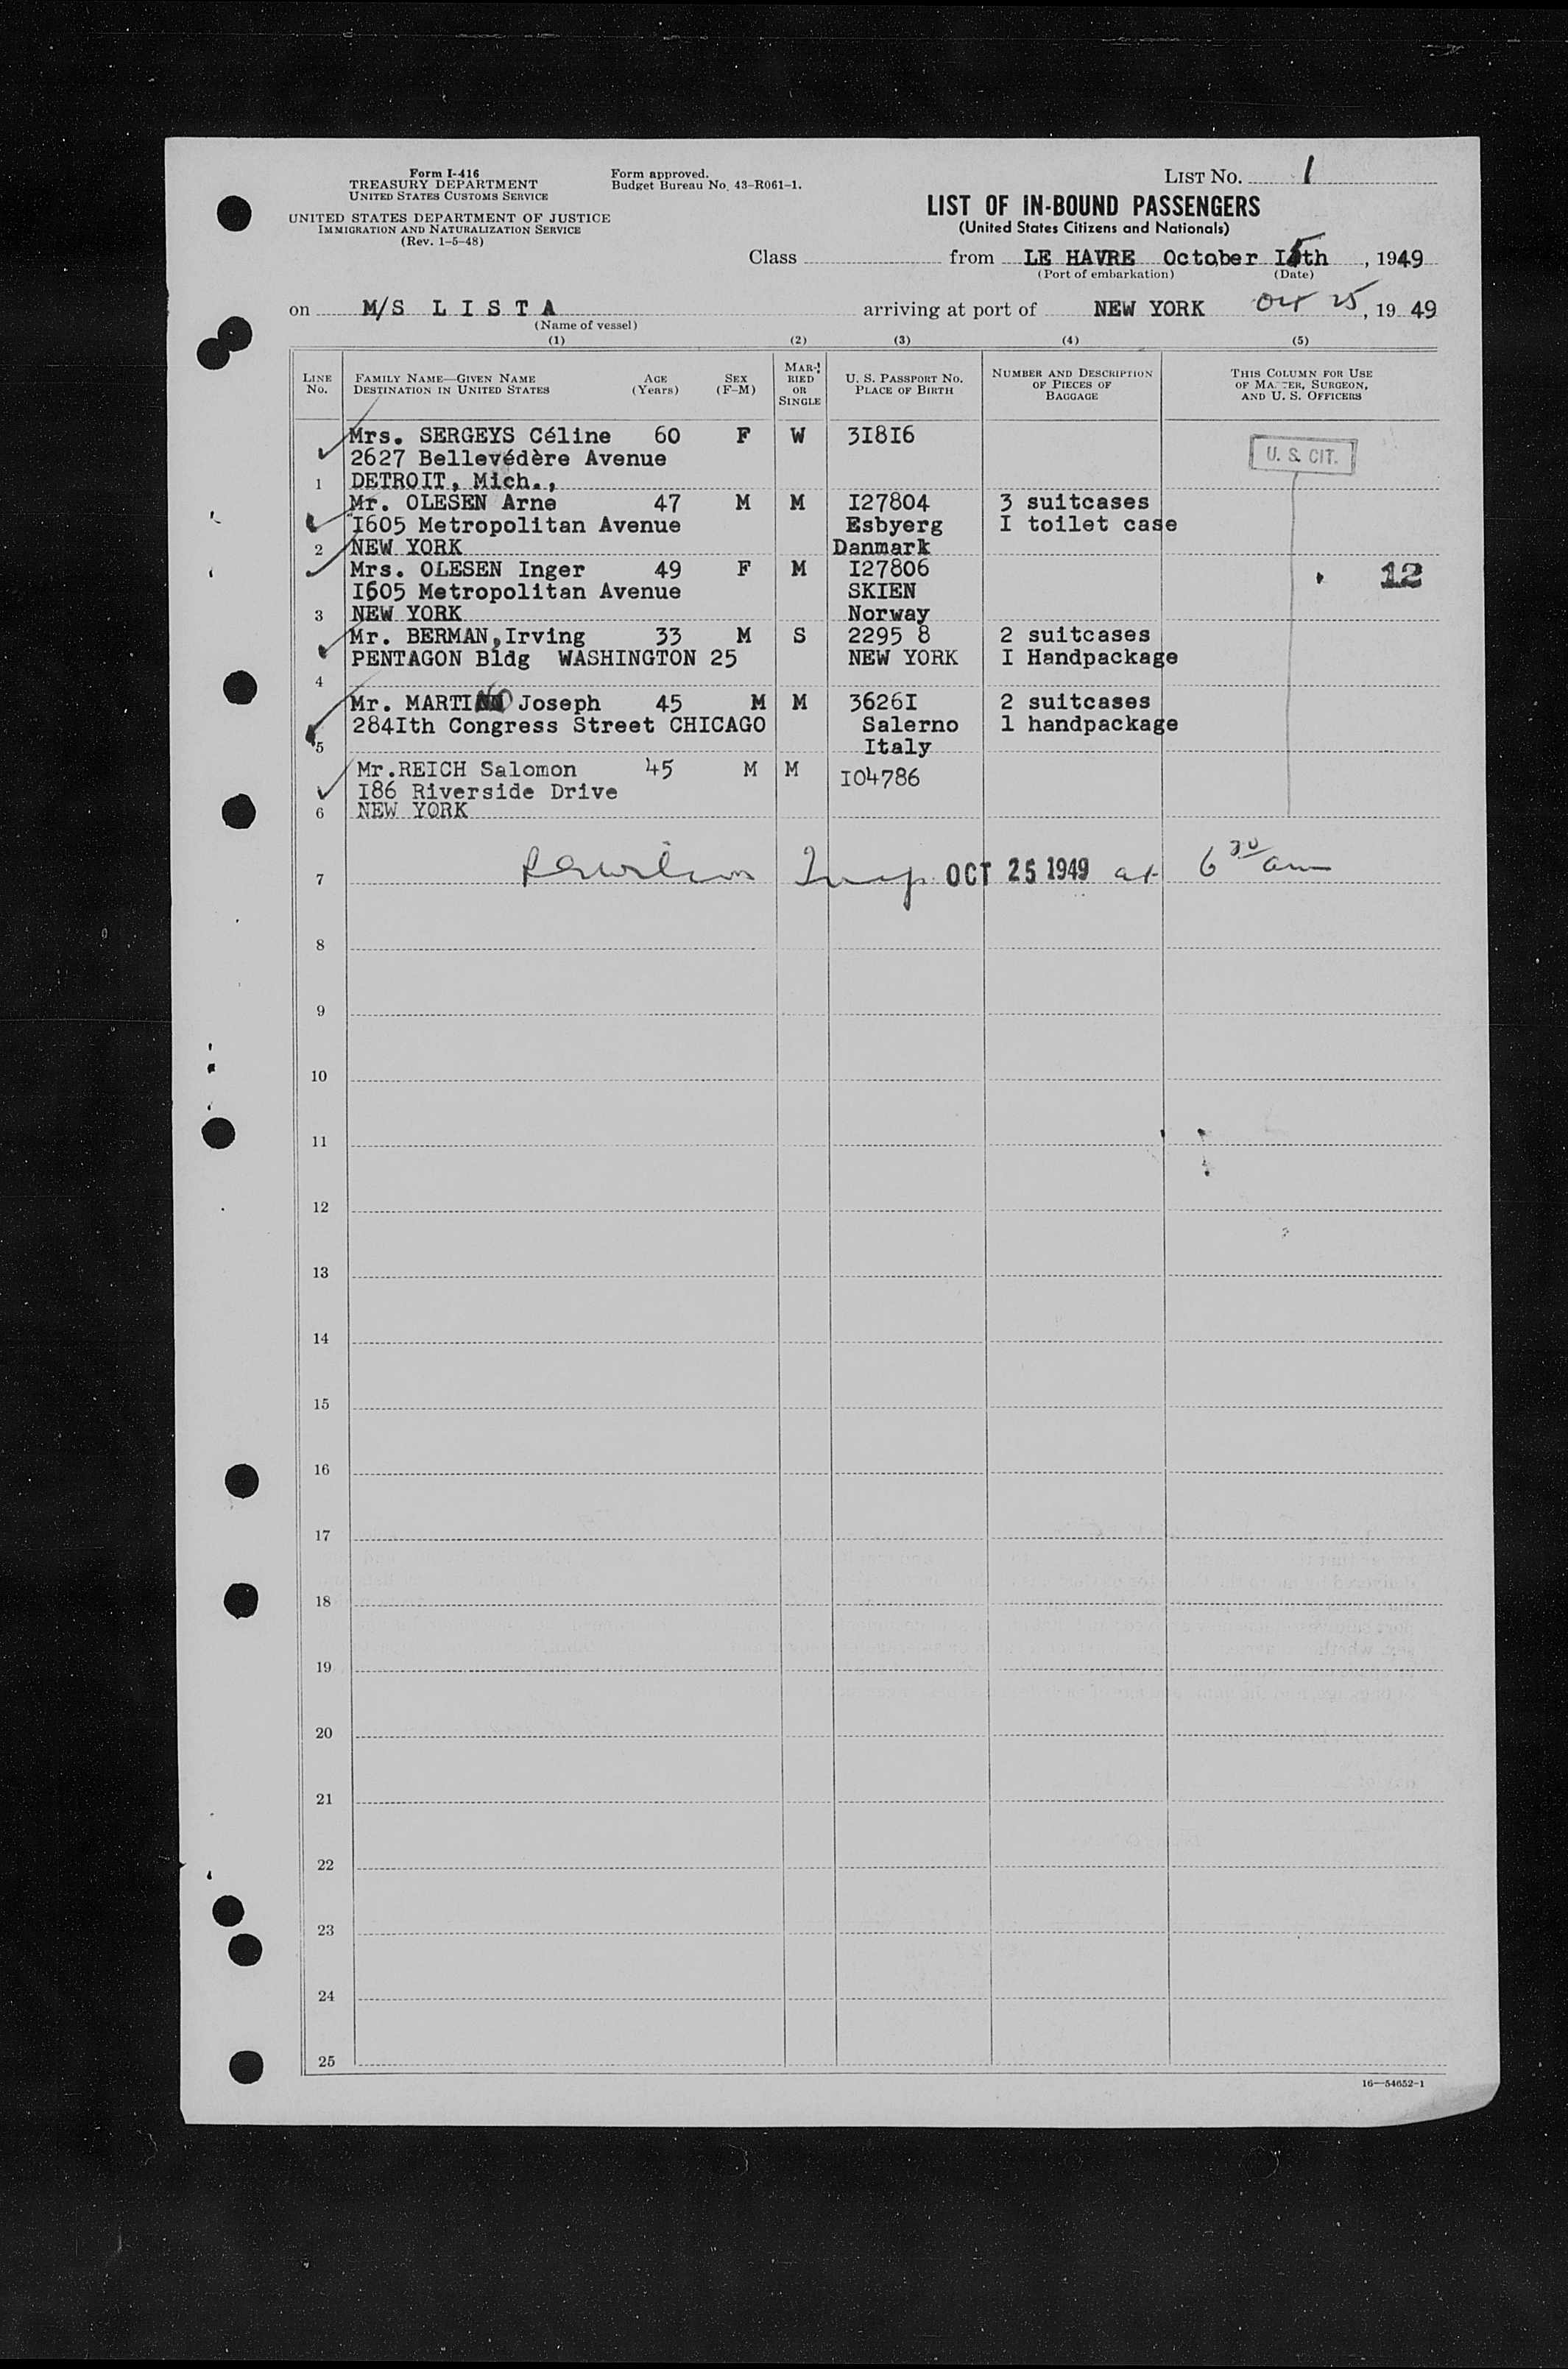 Form I-416
TREASURY DEPARTMENT
UNITED STATES CUSTOMS SERVICE
UNITED STATES DEPARTMENT OF JUSTICE
IMMIGRATION AND NATURALIZATION SERVICE
(Rev. 1-5-48)
Form approved.
Budget Bureau No. 43-R061-1.
LIST NO. 1
LIST OF IN-BOUND PASSENGERS
(United States Citizens and Nationals)
Class from LE HAVRE October 15th, 1949
(Port of embarkation) (Date)
on M/S L I S T A arriving at port of NEW YORK Oct 25, 19 49
(Name of vessel)
(1) (2) (3) (4) (5)
LINE No. FAMILY NAME—GIVEN NAME DESTINATION IN UNITED STATES AGE (Years) SEX (F-M) MARRIED OR SINGLE U. S. PASSPORT NO. PLACE OF BIRTH NUMBER AND DESCRIPTION OF PIECES OF BAGGAGE THIS COLUMN FOR USE OF MASTER, SURGEON, AND U. S. OFFICERS
Mrs. SERGEYS Céline 60 F W 3I8I6
2627 Bellevédère Avenue U. S. CIT.
1 DETROIT, Mich.,
Mr. OLESEN Arne 47 M M I27804 3 suitcases
I605 Metropolitan Avenue Esbyerg I toilet case
2 NEW YORK Danmark
Mrs. OLESEN Inger 49 F M I27806 12
I605 Metropolitan Avenue SKIEN
3 NEW YORK Norway
Mr. BERMAN,Irving 33 M S 2295 8 2 suitcases
PENTAGON Bldg WASHINGTON 25 NEW YORK I Handpackage
4
Mr. MARTINO Joseph 45 M M 3626I 2 suitcases
284Ith Congress Street CHICAGO Salerno 1 handpackage
5 Italy
Mr.REICH Salomon 45 M M I04786
I86 Riverside Drive
6 NEW YORK
7 Insp OCT 25 1949 at 6 30 am
8
9
10
11
12
13
14
15
16
17
18
19
20
21
22
23
24
25
16—54652-1